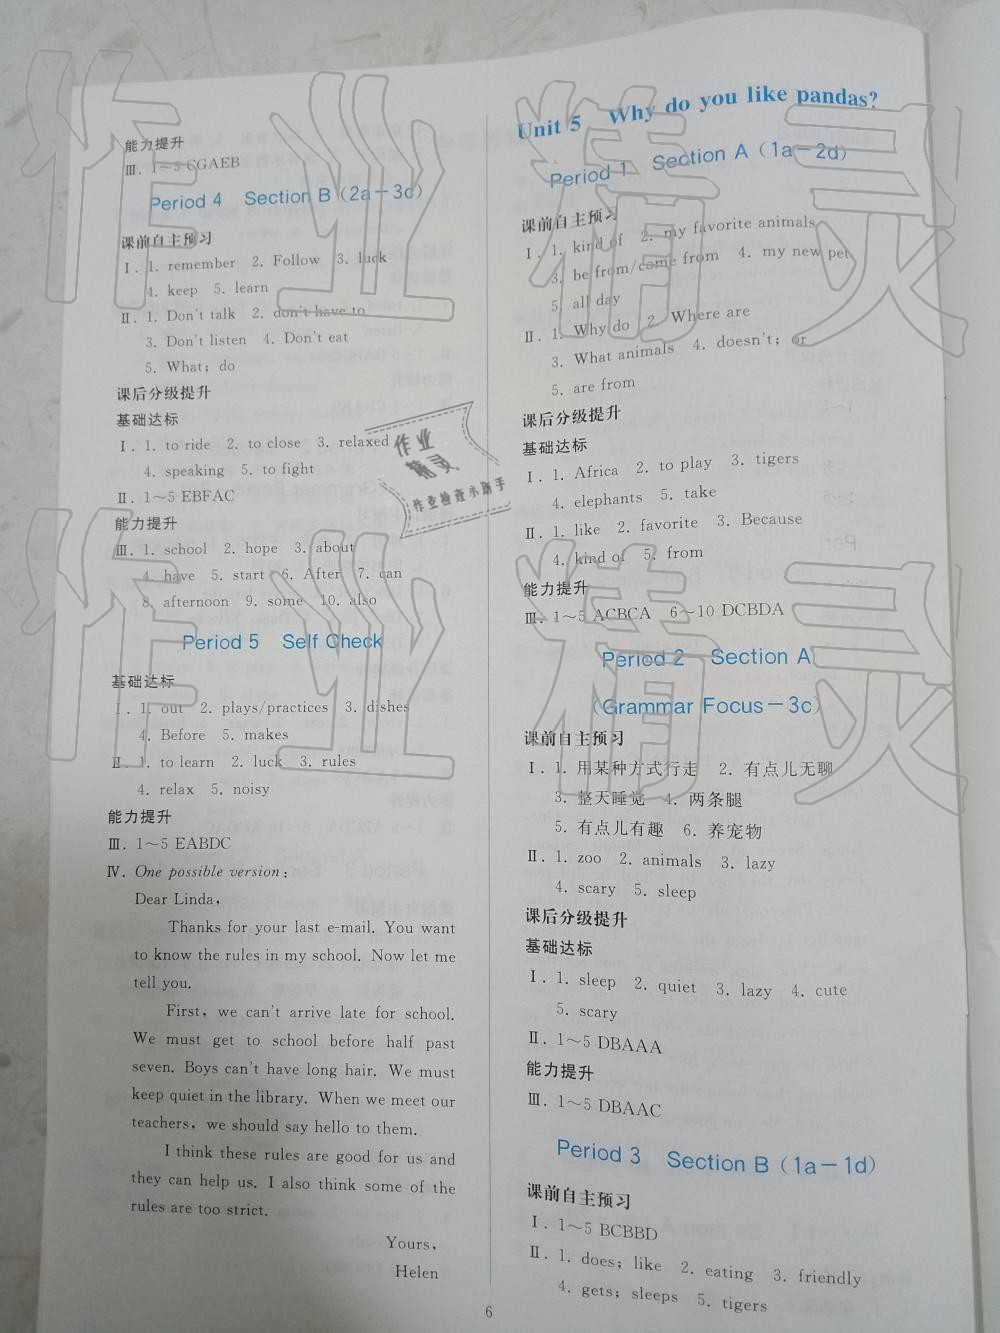 能力提升
Ⅲ. 1～5 CGAEB
Period 4 Section B(2a－3c)
课前自主预习
Ⅰ. 1. remember 2. Follow 3. luck
4. keep 5. learn
Ⅱ. 1. Don't talk 2. don't have to
3. Don't listen 4. Don't eat
5. What; do
课后分级提升
基础达标
Ⅰ. 1. to ride 2. to close 3. relaxed
4. speaking 5. to fight
Ⅱ. 1～5 EBFAC
能力提升
Ⅲ. 1. school 2. hope 3. about
4. have 5. start 6. After 7. can
8. afternoon 9. some 10. also
Period 5 Self Check
基础达标
Ⅰ. 1. out 2. plays/practices 3. dishes
4. Before 5. makes
Ⅱ. 1. to learn 2. luck 3. rules
4. relax 5. noisy
能力提升
Ⅲ. 1～5 EABDC
Ⅳ. One possible version:
Dear Linda,
Thanks for your last e-mail. You want
to know the rules in my school. Now let me
tell you.
First, we can't arrive late for school.
We must get to school before half past
seven. Boys can't have long hair. We must
keep quiet in the library. When we meet our
teachers, we should say hello to them.
I think these rules are good for us and
they can help us. I also think some of the
rules are too strict.
Yours,
Helen
Unit 5 Why do you like pandas?
Period 1 Section A(1a－2d)
课前自主预习
Ⅰ. 1. kind of 2. my favorite animals
3. be from/come from 4. my new pet
5. all day
Ⅱ. 1. Why do 2. Where are
3. What animals 4. doesn't; or
5. are from
课后分级提升
基础达标
Ⅰ. 1. Africa 2. to play 3. tigers
4. elephants 5. take
Ⅱ. 1. like 2. favorite 3. Because
4. kind of 5. from
能力提升
Ⅲ. 1～5 ACBCA 6～10 DCBDA
Period 2 Section A
(Grammar Focus－3c)
课前自主预习
Ⅰ. 1. 用某种方式行走 2. 有点儿无聊
3. 整天睡觉 4. 两条腿
5. 有点儿有趣 6. 养宠物
Ⅱ. 1. zoo 2. animals 3. lazy
4. scary 5. sleep
课后分级提升
基础达标
Ⅰ. 1. sleep 2. quiet 3. lazy 4. cute
5. scary
Ⅱ. 1～5 DBAAA
能力提升
Ⅲ. 1～5 DBAAC
Period 3 Section B(1a－1d)
课前自主预习
Ⅰ. 1～5 BCBBD
Ⅱ. 1. does; like 2. eating 3. friendly
4. gets; sleeps 5. tigers
6
作业精灵
作业精灵
作业
精灵
作业检查小助手